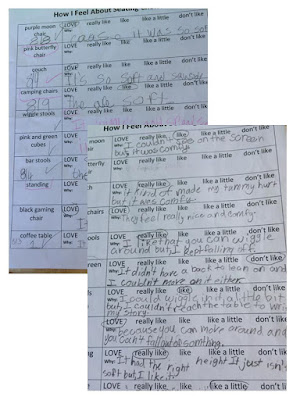 How I Feel About Seating
purple moon chair
LOVE really like like like a little don't like
Why: It was so soft
pink butterfly chair
LOVE really like like like a little don't like
couch
LOVE really like like like a little don't like
Why: It's so soft and
camping chairs
LOVE really like like like a little don't like
soft
wiggle stools
LOVE really like
pink and green cubes
LOVE
Why:
bar stools
LOVE
Why:
standing
LOVE
Why:
black gaming chair
LOVE
coffee table
LOVE
Why:
How I Feel About S
moon
really like like like a little don't like
Why: I couldn't see on the screen
but it was comfy
butterfly
LOVE really like like like a little don't like
Why: It kind of made my tummy hurt
but it was comfy.
chairs
LOVE really like like like a little don't like
Why: They feel really nice and comfy.
ools
LOVE really like like like a little don't like
Why: I like that you can wiggle
around but I kept falling off.
een
LOVE really like like like a little don't like
Why: It didn't have a back to lean on and
I couldn't move on it either.
LOVE really like like like a little don't like
Why: I could wiggle in it a little bit
but I couldn't reach the table to write
my story.
LOVE really like like like a little don't like
Why: because you can move around and
you can't fall out of something.
LOVE really like like like a little don't like
Why: It had the right height it just isn't
soft but I like it.
LOVE really like like like a little don't like